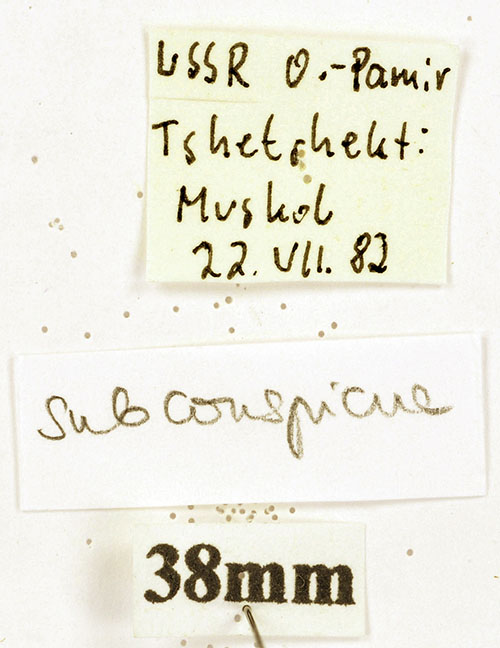 USSR O.-Pamir
Tshetshekt:
Muskol
22.VII.82
subconspicua
38mm